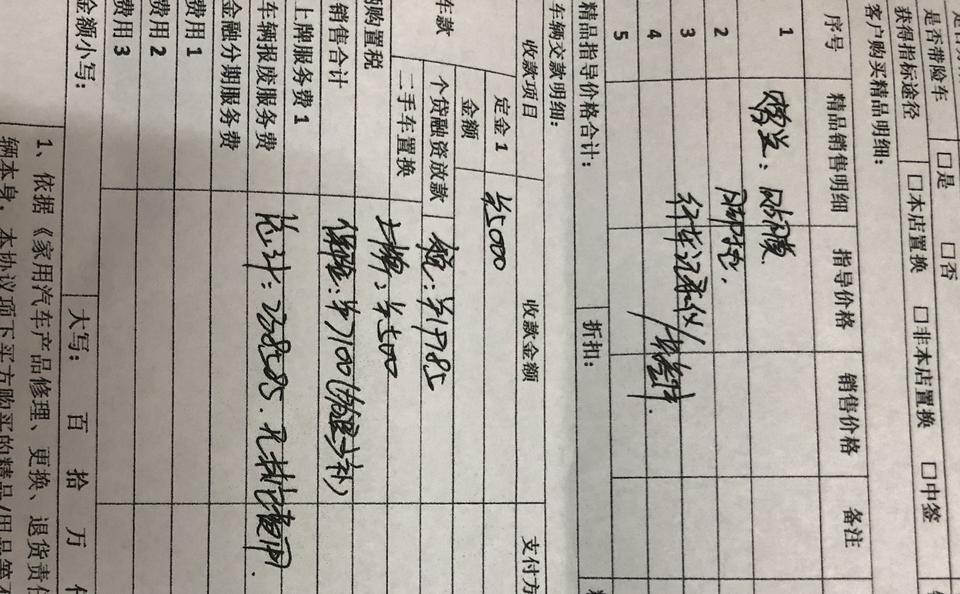 是否带险车 □是 □否
获得指标途径 □本店置换 □非本店置换 □中签
客户购买精品明细:
序号 精品销售明细 指导价格 销售价格 备注
1 赠送:
2
3 行车记录仪/
4
5
精品指导价格合计: 折扣:
车辆交款明细:
收款项目 收款金额 支付方
车款 定金 1 ¥5000
金额
个贷融资放款 税:
二手车置换 上牌:¥500
购置税
销售合计 保险:¥7100(多退少补)
上牌服务费 1
车辆报废服务费 总计:
金融分期服务费
费用 1
费用 2
费用 3
金额小写: 大写: 百 拾 万
1、依据《家用汽车产品修理、更换、退货责任
辆本身。本协议项下买方购买的精品/用品等